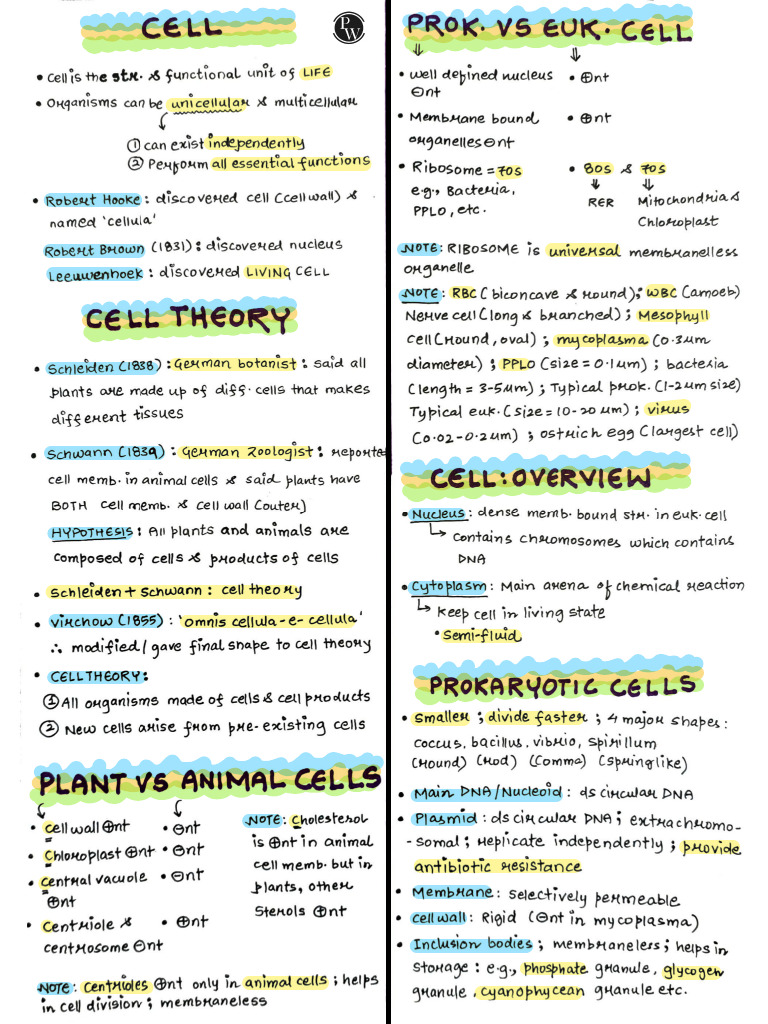 CELL
PW
• Cell is the str. & functional unit of LIFE
• Organisms can be unicellular & multicellular
① can exist independently
② Perform all essential functions
• Robert Hooke : discovered cell (cell wall) &
named 'cellula'
Robert Brown (1831) : discovered nucleus
Leeuwenhoek : discovered LIVING CELL
CELL THEORY
• Schleiden (1838) : German botanist : said all
plants are made up of diff. cells that makes
different tissues
• Schwann (1839) : German Zoologist : reporte
cell memb. in animal cells & said plants have
BOTH cell memb. & cell wall (outer)
HYPOTHESIS : All plants and animals are
composed of cells & products of cells
• Schleiden + Schwann : cell theory
• Virchow (1855) : 'omnis cellula-e-cellula'
∴ modified/ gave final shape to cell theory
• CELL THEORY :
① All organisms made of cells & cell products
② New cells arise from pre-existing cells
PLANT VS ANIMAL CELLS
• cell wall ⊕nt • ⊖nt
• Chloroplast ⊕nt • ⊖nt
• central vacuole • ⊖nt
⊕nt
• Centriole & • ⊕nt
centrosome ⊖nt
NOTE : Cholesterol
is ⊕nt in animal
cell memb. but in
plants, other
sterols ⊕nt
NOTE : Centrioles ⊕nt only in animal cells ; helps
in cell division ; membraneless
PROK. VS EUK. CELL
• well defined nucleus • ⊕nt
⊖nt
• Membrane bound • ⊕nt
organelles ⊖nt
• Ribosome = 70s • 80s & 70s
e.g., Bacteria,
PPLO, etc.
RER
Mitochondria &
Chloroplast
NOTE : RIBOSOME is universal membranelless
organelle
NOTE : RBC (biconcave & round) ; WBC (amoeb)
Nerve cell (long & branched) ; Mesophyll
cell (round, oval) ; mycoplasma (0.3µm
diameter) ; PPLO (size = 0.1µm) ; bacteria
(length = 3-5µm) ; Typical prok. (1-2µm size)
Typical euk. (size = 10-20 µm) ; virus
(0.02-0.2µm) ; ostrich egg (largest cell)
CELL : OVERVIEW
• Nucleus : dense memb. bound str. in euk. cell
contains chromosomes which contains
DNA
• Cytoplasm : Main arena of chemical reaction
keep cell in living state
• semi-fluid
PROKARYOTIC CELLS
• smaller ; divide faster ; 4 major shapes :
coccus, bacillus, vibrio, spirillum
(round) (rod) (comma) (springlike)
• Main DNA/Nucleoid : ds circular DNA
• Plasmid : ds circular DNA ; extrachromo-
-somal ; replicate independently ; provide
antibiotic resistance
• Membrane : selectively permeable
• cell wall : Rigid (⊖nt in mycoplasma)
• Inclusion bodies ; membraneless ; helps in
storage : e.g., phosphate granule, glycogen
granule, cyanophycean granule etc.